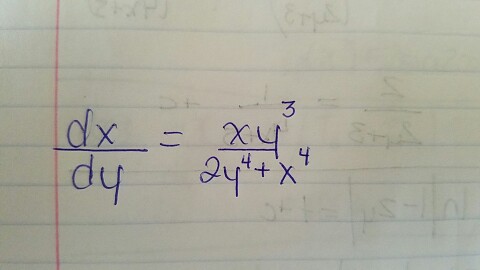 dx/dy = xy³/2y⁴+x⁴